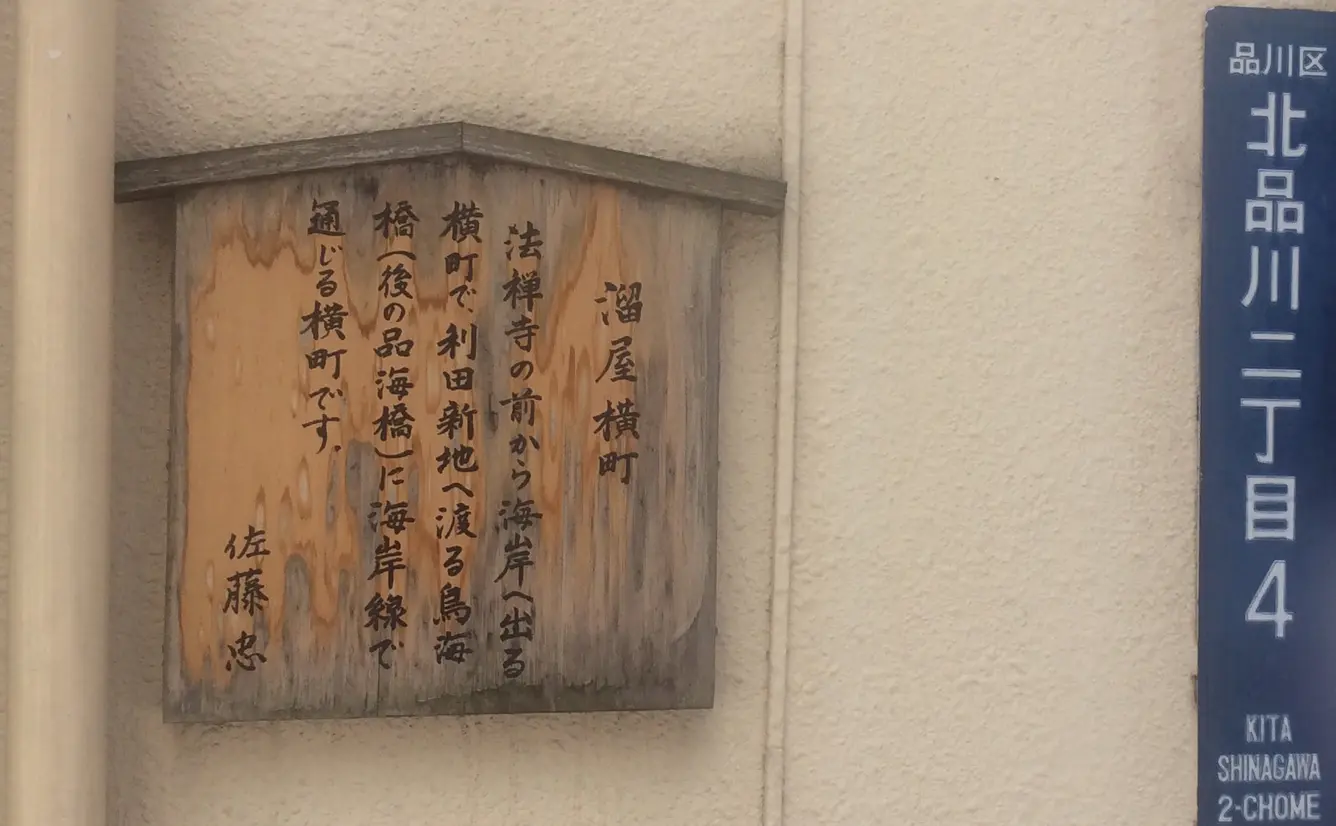 溜屋横町
法禅寺の前から海岸へ出る
横町で、利田新地へ渡る鳥海
橋(後の品海橋)に海岸線で
通じる横町です。
佐藤忠
品川区
北品川二丁目4
KITA
SHINAGAWA
2-CHOME